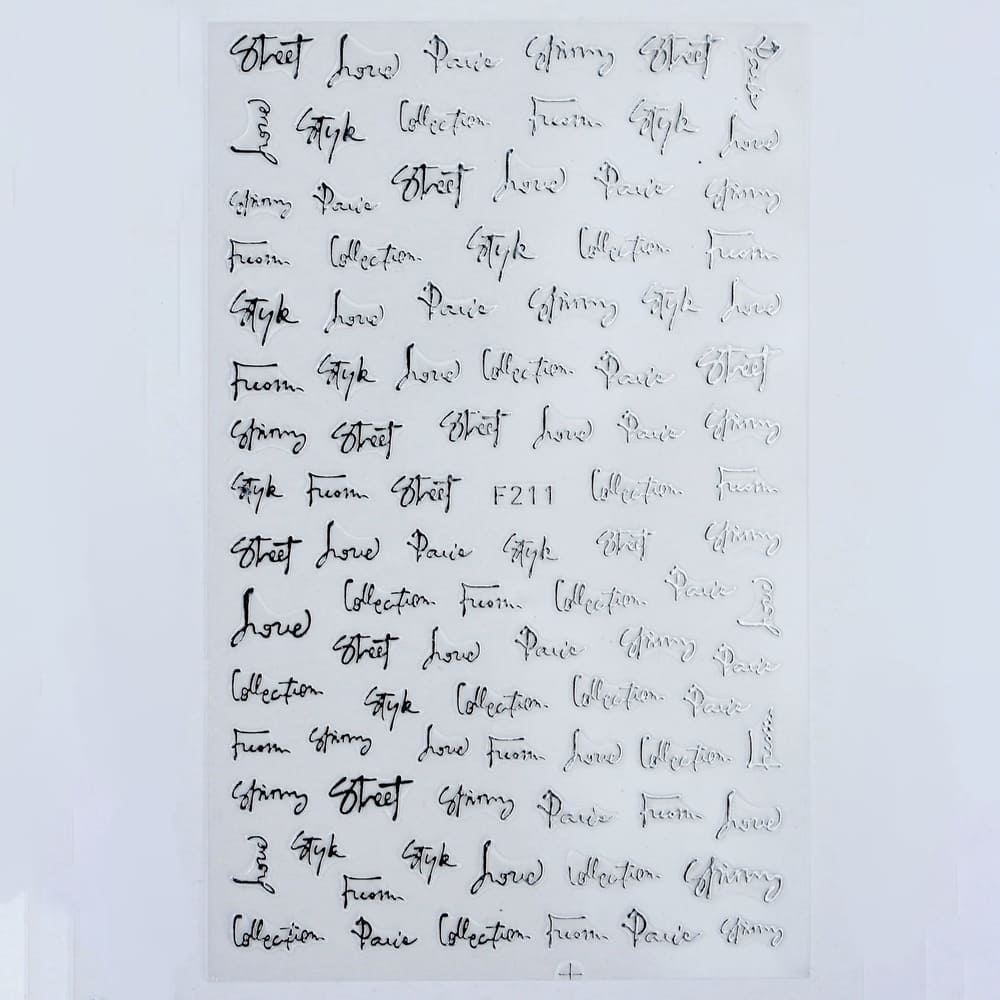 Street Love Paris Spinny Street Paris
Love Style Collection Fuom Style Love
Spinny Paris Street Love Paris Spinny
Fuom Collection Style Collection Fuom
Style Love Paris Spinny Style Love
Fuom Style Love Collection Paris Street
Spinny Street Street Love Paris Spinny
Style Fuom Street F211 Collection Fuom
Street Love Paris Style Street Spinny
Love Collection Fuom Collection Paris Love
Street Love Paris Spinny Paris
Collection Style Collection Collection Paris
Fuom Spinny Love Fuom Love Collection Fuom
Spinny Street Spinny Paris Fuom Love
Love Style Fuom Style Love Collection Spinny
Collection Paris Collection Fuom Paris Spinny